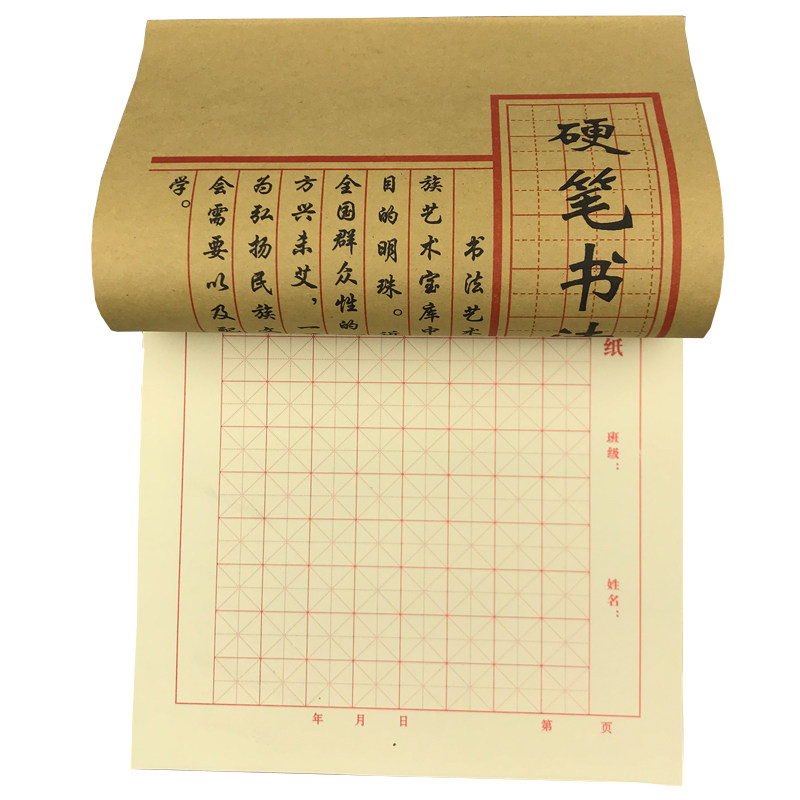 硬笔书法
书法艺术
族艺术宝库中
目的明珠。
全国群众性的
方兴未艾，一
为弘扬民族
会需要以及
学。
纸
班级：
姓名：
年 月 日
第 页